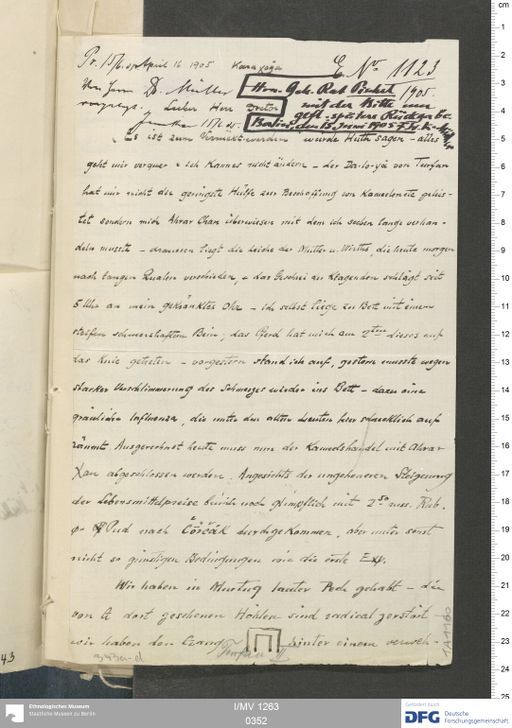 Pr. 15/6. 05 April 16 1905 Karaxoja
E. No 1123
1905.
Herrn Dr. Müller
Hrn. Geh. Rat Pischel
Lieber Herr Direktor
mit der Bitte um
gefl. spätere Rückgabe.
Berlin, den 15. Juni 1905 F.W.K. Müller
Es ist zum Verrücktwerden würde Huth sagen - alles
geht mir verquer & ich kann es nicht ändern - der Da-lo-yä von Turfan
hat mir nicht die geringste Hülfe zur Beschaffung von Kameelen etc geleis-
tet sondern mich Ahrar Chan überwiesen mit dem ich soeben lange verhan-
deln musste - draussen liegt die Leiche der Mutter u. Wirths, die heute morgen
nach langen Qualen verschieden, & das Geschrei der Klagenden schlägt seit
5 Uhr an mein gekränktes Ohr - ich selbst liege zu Bett mit einem
steifen schmerzhaften Bein, das Pferd hat mich am 2ten dieses auf
das Knie getreten - vorgestern stand ich auf, gestern musste wegen
starker Verschlimmerung des Schmerzes wieder ins Bett - dazu eine
gräuliche Influenza, die unter den alten Leuten hier schrecklich auf
räumt. Ausgerechnet heute muss nun der Kameelshandel mit Ahrar
Xan abgeschlossen werden. Angesichts der ungeheueren Steigerung
der Lebensmittelpreise bin ich noch glimpflich mit 2 50 russ. Rub.
pr Pud nach Čörčäk durchgekommen, aber unter sonst
nicht so günstigen Bedingungen wie die erste Exp.
Wir haben in Murtuq lauter Pech gehabt - die
von G dort gesehenen Höhlen sind radical zerstört
wir haben den Gang hinter einem verweh-
Turfan II
IA 1160
343a-d
43
Ethnologisches Museum
Staatliche Museen zu Berlin
I/MV 1263
0352
Gefördert durch
DFG Deutsche
Forschungsgemeinschaft